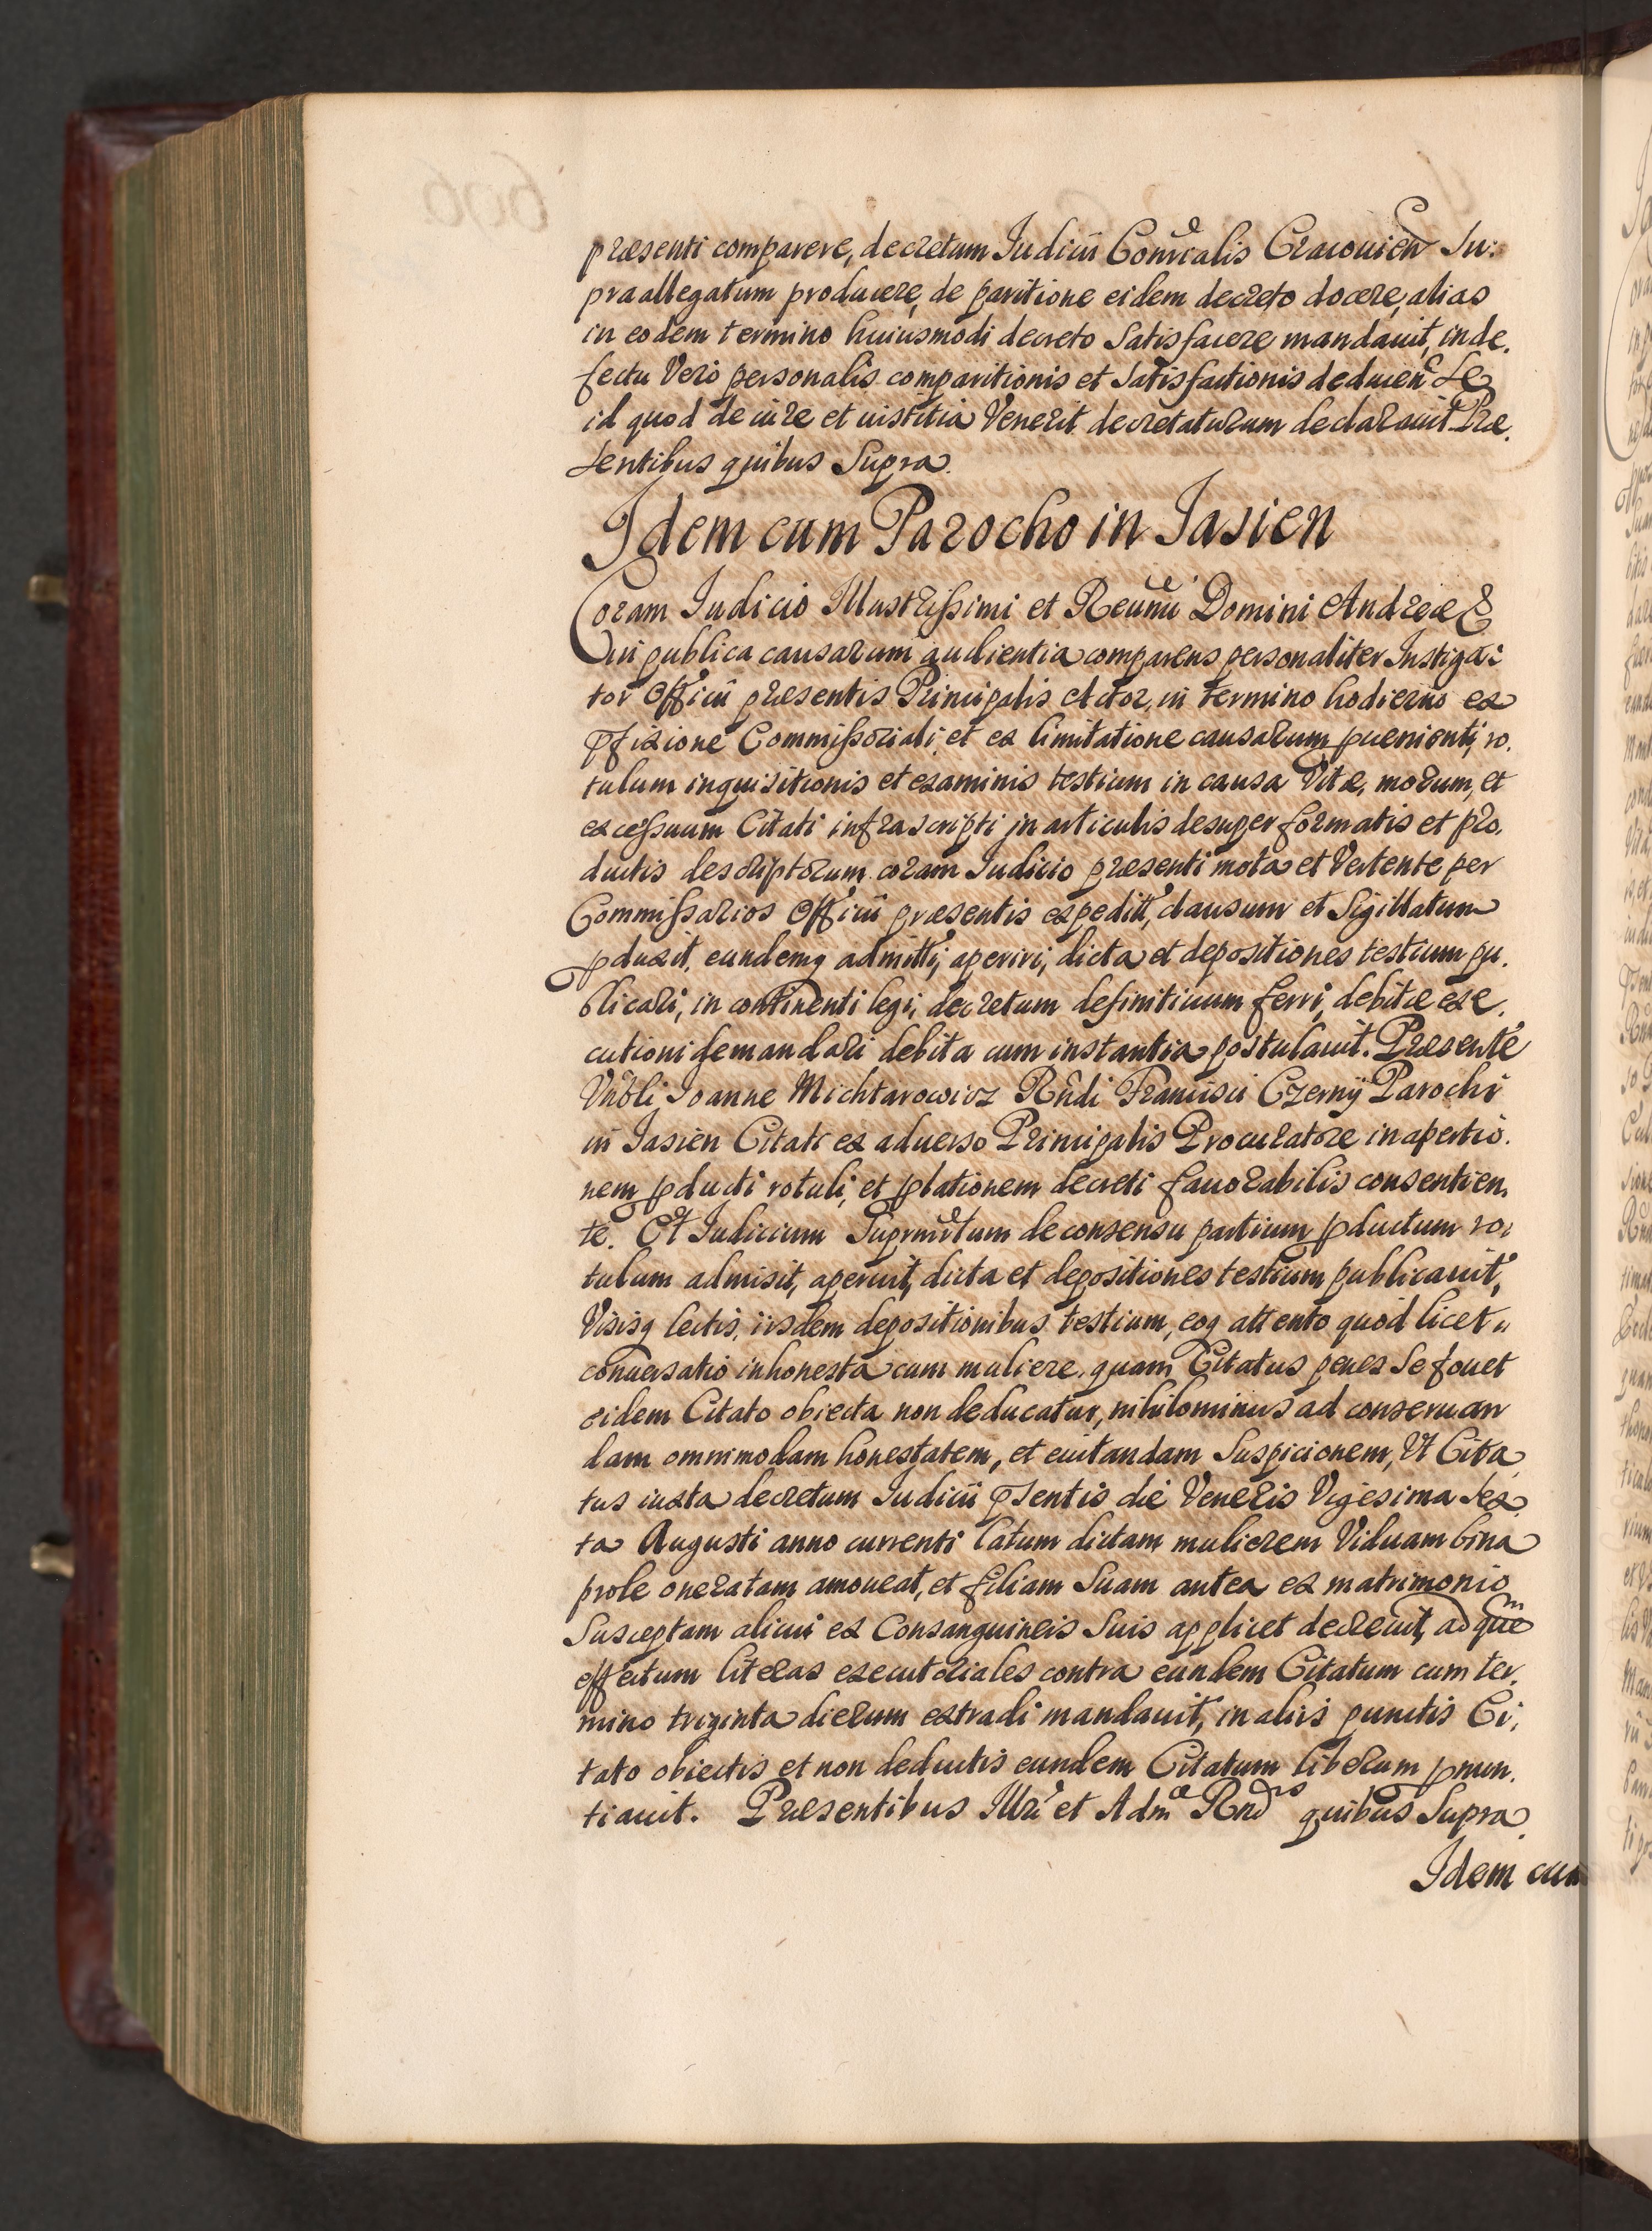 præsenti comparere, decretum Iudicii Comrcalis Cracouien̄ Su:
praallegatum producere, de paritione eidem decreto docere, alias
in eodem termino huiusmodi decreto Satisfacere mandauit, in de.
fectu Vero personalis comparitionis et Satisfactionis deducen Se
id quod de iure et iustitia Venerit decretaturum declarauit Præ.
sentibus quibus Supra.
Idem cum Parocho in Iasien
Coram Iudicio Illustrissimi et Reuumi Domini Andreæ &
in publica causarum audientia comparens personaliter Instiga:
tor Officii præsentis Principalis Actor, in termino hodierno ex
pfixione Commissoriali, et ex limitatione causarum puenienti, ro.
tulum inquisitionis et examinis testium in causa Vitæ, morum, et
excessuum Citati infrascripti in articulis desuper formatis et pro.
ductis descriptorum coram Iudicio præsenti mota et Vertente per
Commissarios Officii præsentis expeditt, clausum et Sigillatum
pduxit, eundemq admitti, aperiri, dicta et depositiones testium pu.
blicari, in continenti legi, decretum definitiuum ferri, debitæ exe.
cutioni demandari debita cum instantia postulauit. Præsente
Vnbli Ioanne Michtarowicz Rndi Francisci Czerny Parochi
in Iasien Citati ex aduerso Principalis Procuratore in apertio.
nem pducti rotuli, et plationem decreti fauorabilis consentien.
te. Et Iudicium Suprmtum de consensu partium pductum ro.
tulum admisit, aperuit, dicta et depositiones testium publicauit,
Visisq lectis iisdem depositionibus testium, eoq attento quod licet
conuersatio inhonesta cum muliere, quam Citatus penes Se fouet
eidem Citato obiecta non deducatur, nihilominus ad conseruan
dam omnimodam honestatem, et euitandam Suspicionem, Vt Cita
tus iuxta decretum Iudicii psentis die Veneris Vigesima Sex
ta Augusti anno currenti latum dictam mulierem Viduam bina
prole oneratam amoueat, et filiam Suam antea ex matrimonio
Susceptam alicui ex Consanguineis Suis applicet decreuit, ad quem
effectum literas executoriales contra eundem Citatum cum ter.
mino triginta dierum extradi mandauit, in aliis punctis Ci.
tato obiectis et non deductis eundem Citatum liberum pnun.
tiauit. Præsentibus Illri et Adm Rndis quibus Supra.
Idem cum